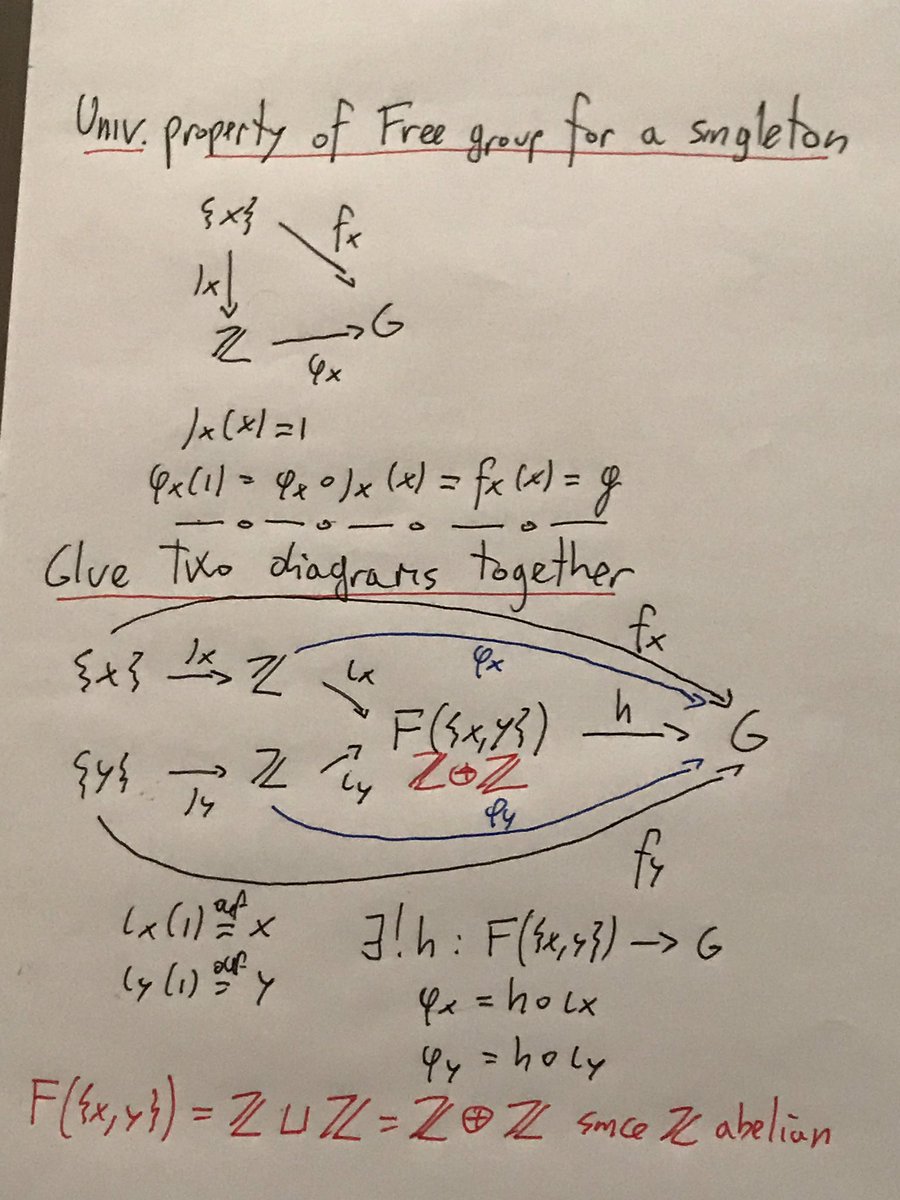 Univ. property of Free group for a singleton
{x} fx
jx
ℤ G
φx
jx(x) = 1
φx(1) = φx ∘ jx (x) = fx (x) = g
Glue Two diagrams together
fx
{x} jx ℤ ιx φx
F({x,y}) h G
{y} jy ℤ ιy ℤ⊕ℤ
φy
fy
ιx(1) def= x ∃! h : F({x,y}) → G
ιy(1) def= y
φx = h ∘ ιx
φy = h ∘ ιy
F({x,y}) = ℤ ⊔ ℤ = ℤ ⊕ ℤ since ℤ abelian